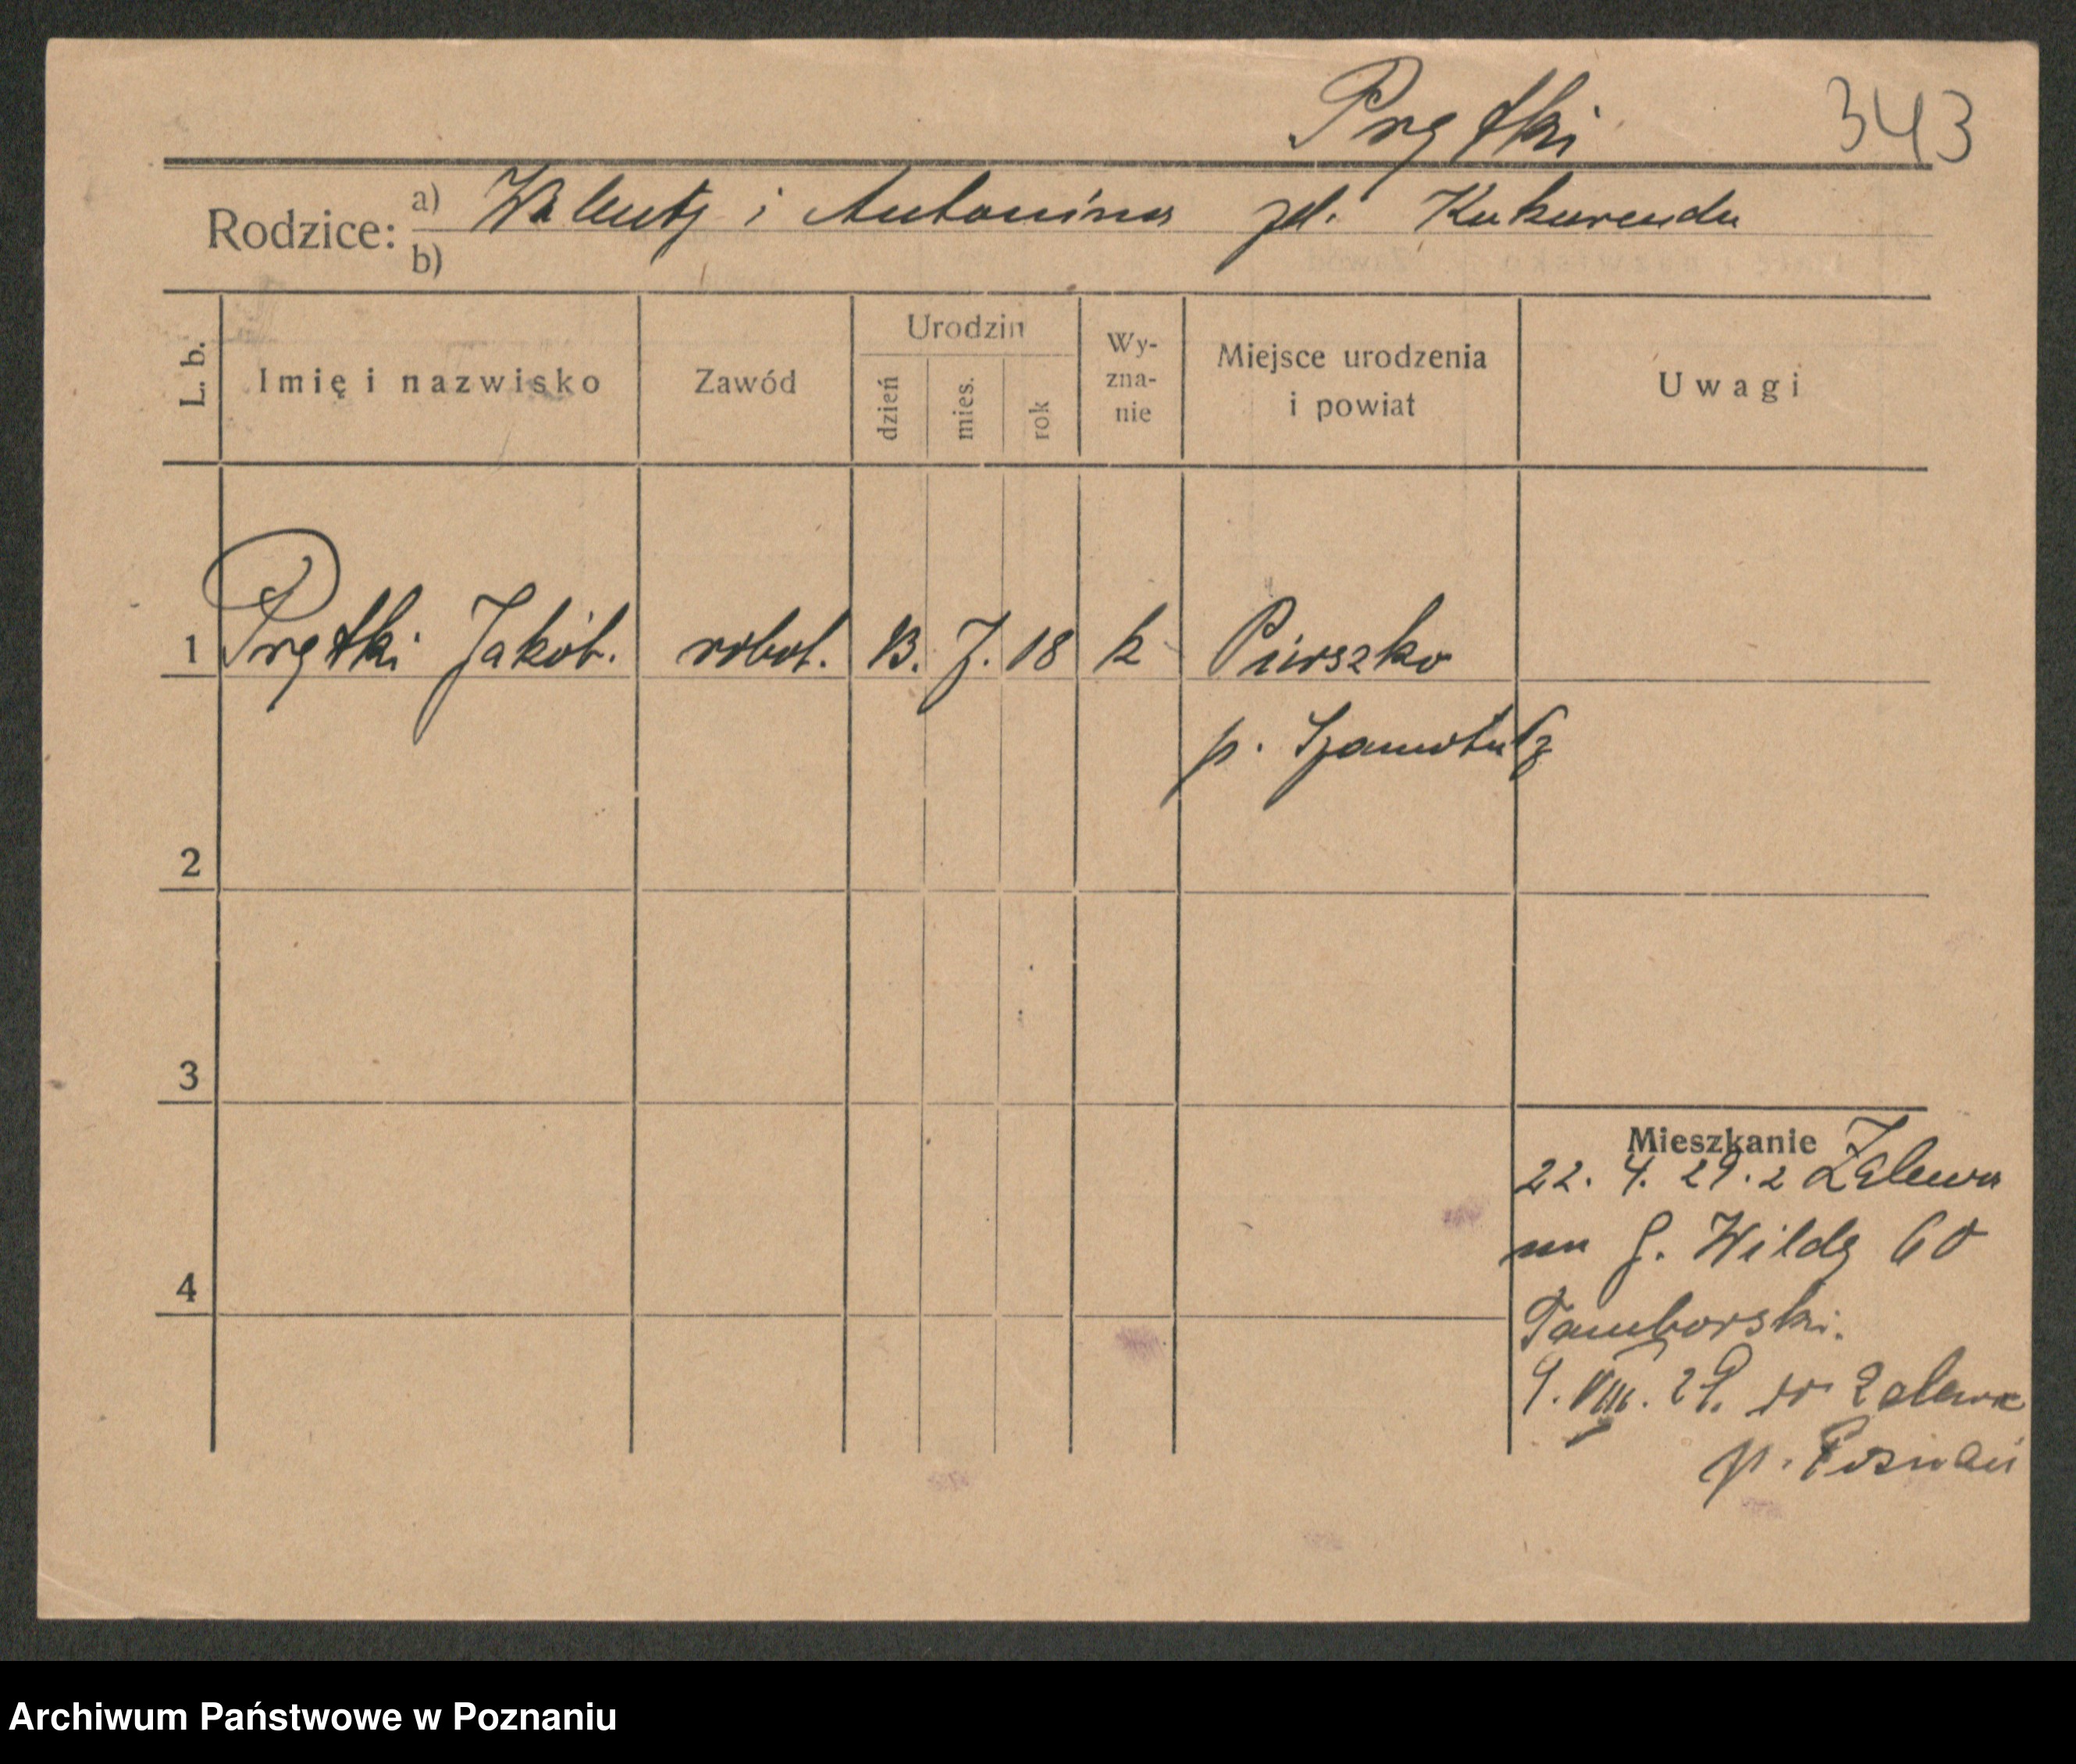 Prętki 343
Rodzice: a) Walenty i Antonina zd. Kukurenda
b)
L. b. Imię i nazwisko Zawód Urodzin dzień mies. rok Wy-zna-nie Miejsce urodzenia i powiat Uwagi
1 Prętki Jakób. robot. 13. 7. 18 k Piersko
p. Szamotuły
2
3
4
Mieszkanie
22. 4. 29. z Zalewa
na G. Wildę 60
Tamborski.
9. VIII. 29. do Zalewa
p. Poznań
Archiwum Państwowe w Poznaniu